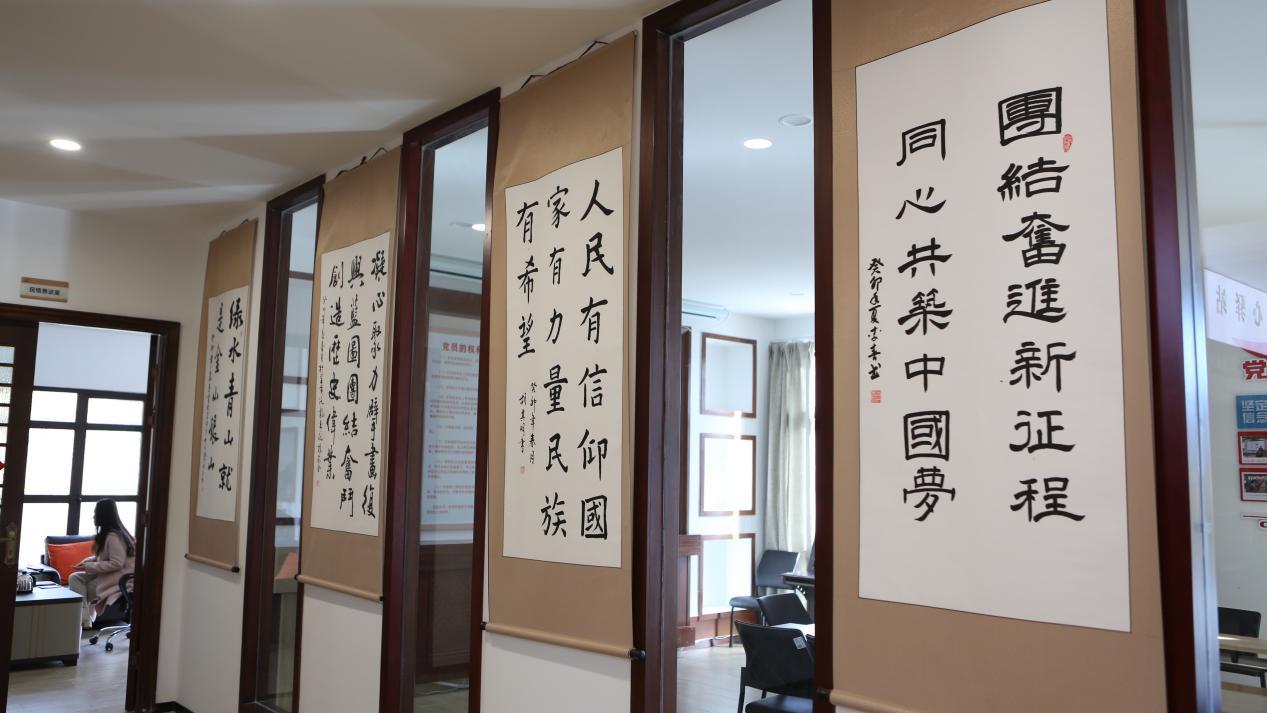 團結奮進新征程
同心共築中國夢
人民有信仰國
家有力量民族
有希望
癸卯年春月
凝心聚力擘畫復
興藍圖團結奮鬥
創造歷史偉業
綠水青山就
是金山銀山
党员的权
心驿站
党
坚定
信念